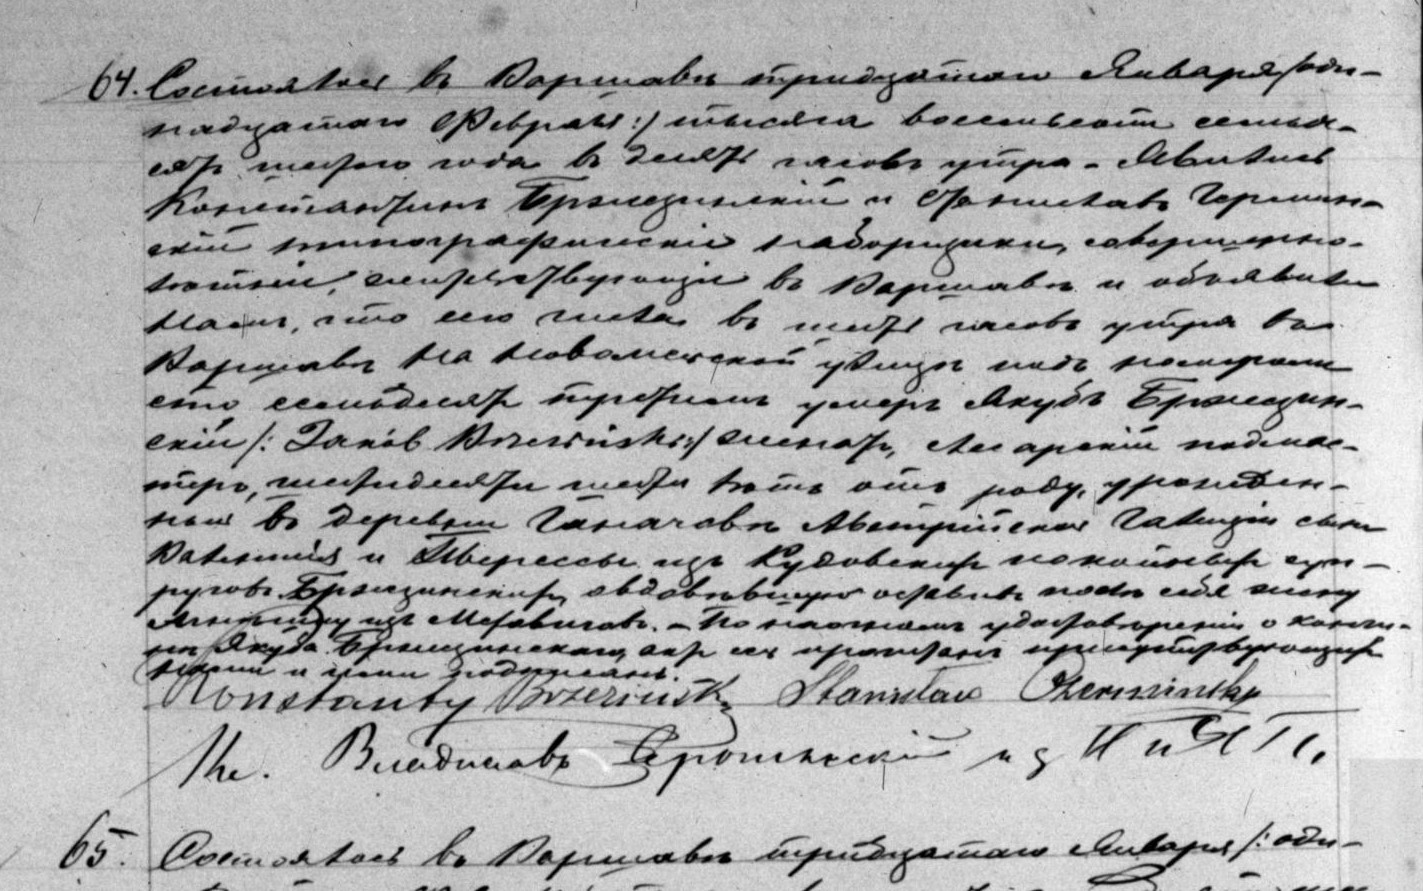 64. Состоялось въ Варшавѣ тридцатаго Января /: оди-
надцатаго Февраля :/ тысяча восемьсотъ семьде-
сятъ шестаго года въ десять часовъ утра. – Явились
Константинъ Бржезинскій и Станиславъ Чермин-
скій типографическіе наборщики, совершенно-
лѣтніе, жительствующіе въ Варшавѣ и объявили
намъ, что сего числа въ шесть часовъ утра въ
Варшавѣ на Новомейской улицѣ подъ номеромъ
сто семьдесятъ третьимъ умеръ Якубъ Бржезин-
скій /: Jakób Brzeziński :/ женатъ, подмас-
терье, шестидесяти шести лѣтъ отъ роду, урожден-
ный въ деревни Австрійской Галиціи сынъ
и Терессы изъ покойныхъ суп-
руговъ Бржезинскихъ, овдовѣвшую оставивъ послѣ себя жену
изъ – По наочномъ удостовѣреніи о кончи-
нѣ Якуба Бржезинскаго, актъ сей прочитанъ присутствующимъ
нами и ими подписанъ.
Konstanty Brzeziński Stanisław Czermiński
Кс. Владиславъ
65. Состоялось въ Варшавѣ тридцатаго Января /: оди-